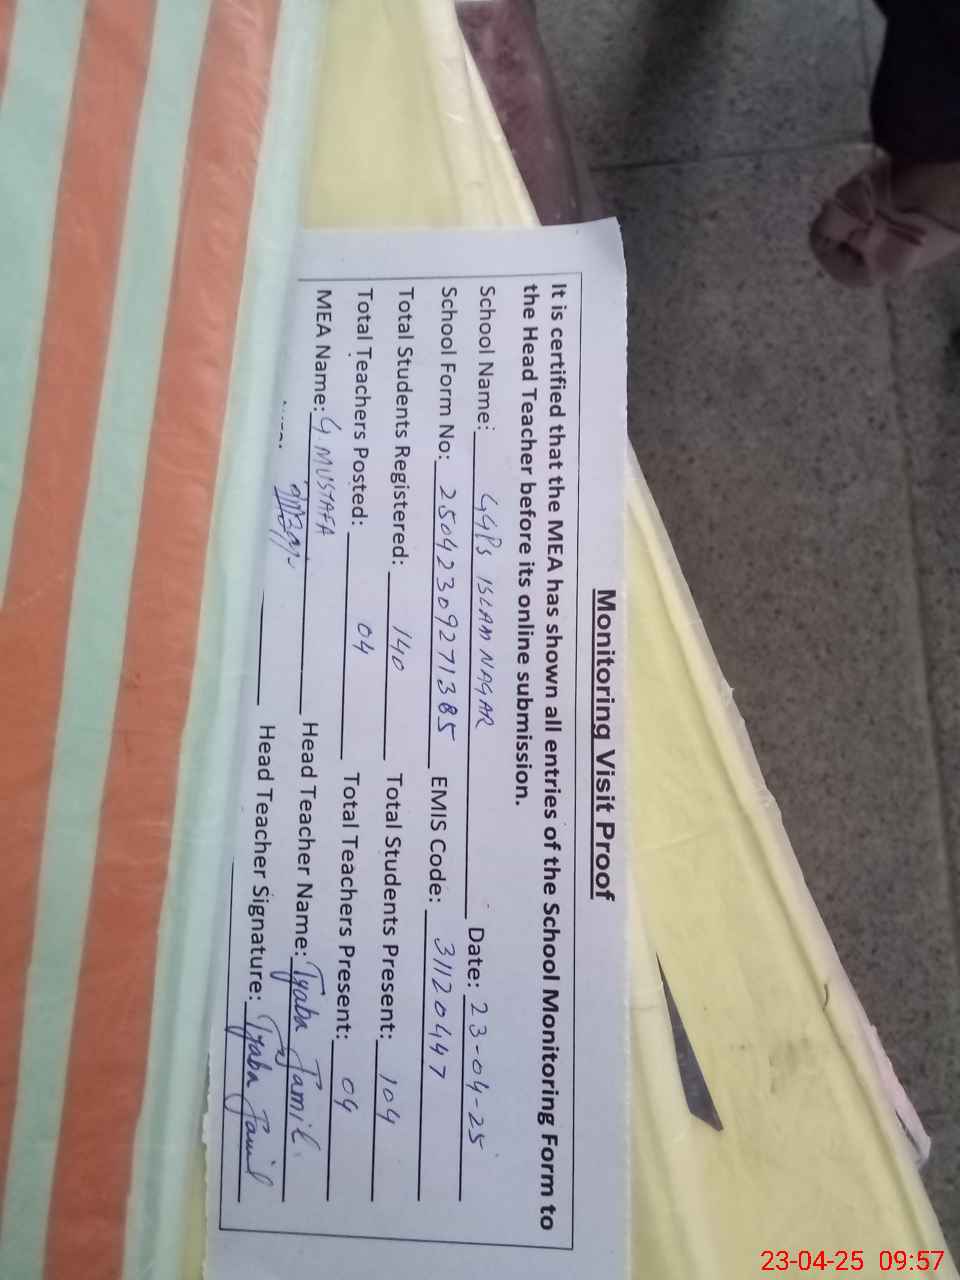 Monitoring Visit Proof
It is certified that the MEA has shown all entries of the School Monitoring Form to
the Head Teacher before its online submission.
School Name: GGPS ISLAM NAGAR Date: 23-04-25
School Form No: 25042309271385 EMIS Code: 31120447
Total Students Registered: 140 Total Students Present: 104
Total Teachers Posted: 04 Total Teachers Present: 04
MEA Name: G. MUSTAFA Head Teacher Name: Tyaba Jamil.
Head Teacher Signature: Tyaba Jamil
23-04-25 09:57